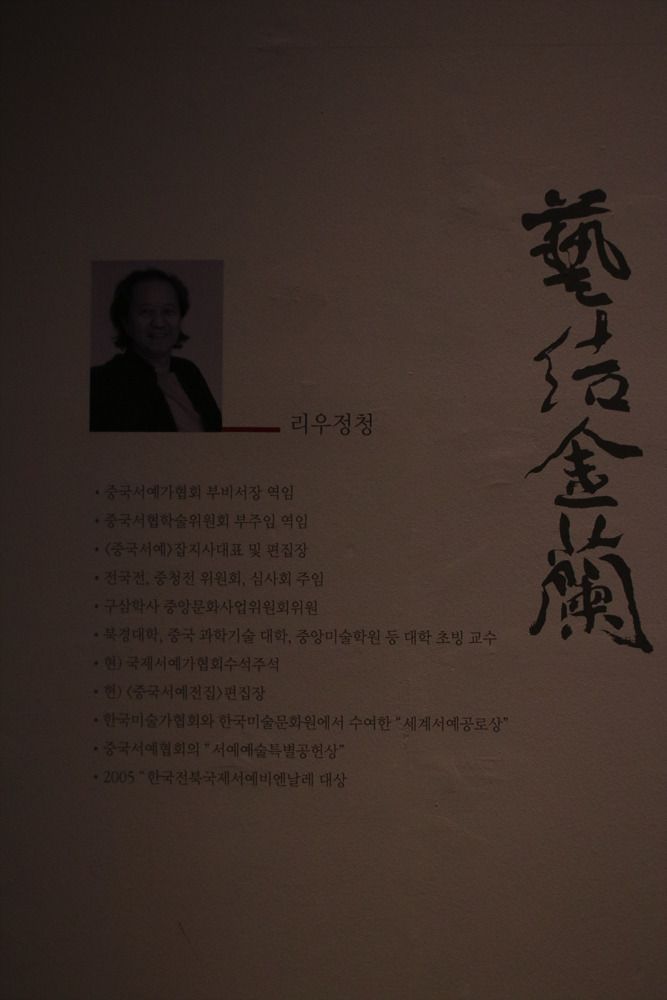 藝結金蘭
리우정청
• 중국서예가협회 부비서장 역임
• 중국서협학술위원회 부주임 역임
• 〈중국서예〉잡지사대표 및 편집장
• 전국전, 중청전 위원회, 심사회 주임
• 구삼학사 중앙문화사업위원회위원
• 북경대학, 중국 과학기술 대학, 중앙미술학원 등 대학 초빙 교수
• 현) 국제서예가협회수석주석
• 현) 〈중국서예전집〉편집장
• 한국미술가협회와 한국미술문화원에서 수여한 “세계서예공로상”
• 중국서예협회의 “서예예술특별공헌상”
• 2005 “한국전북국제서예비엔날레 대상